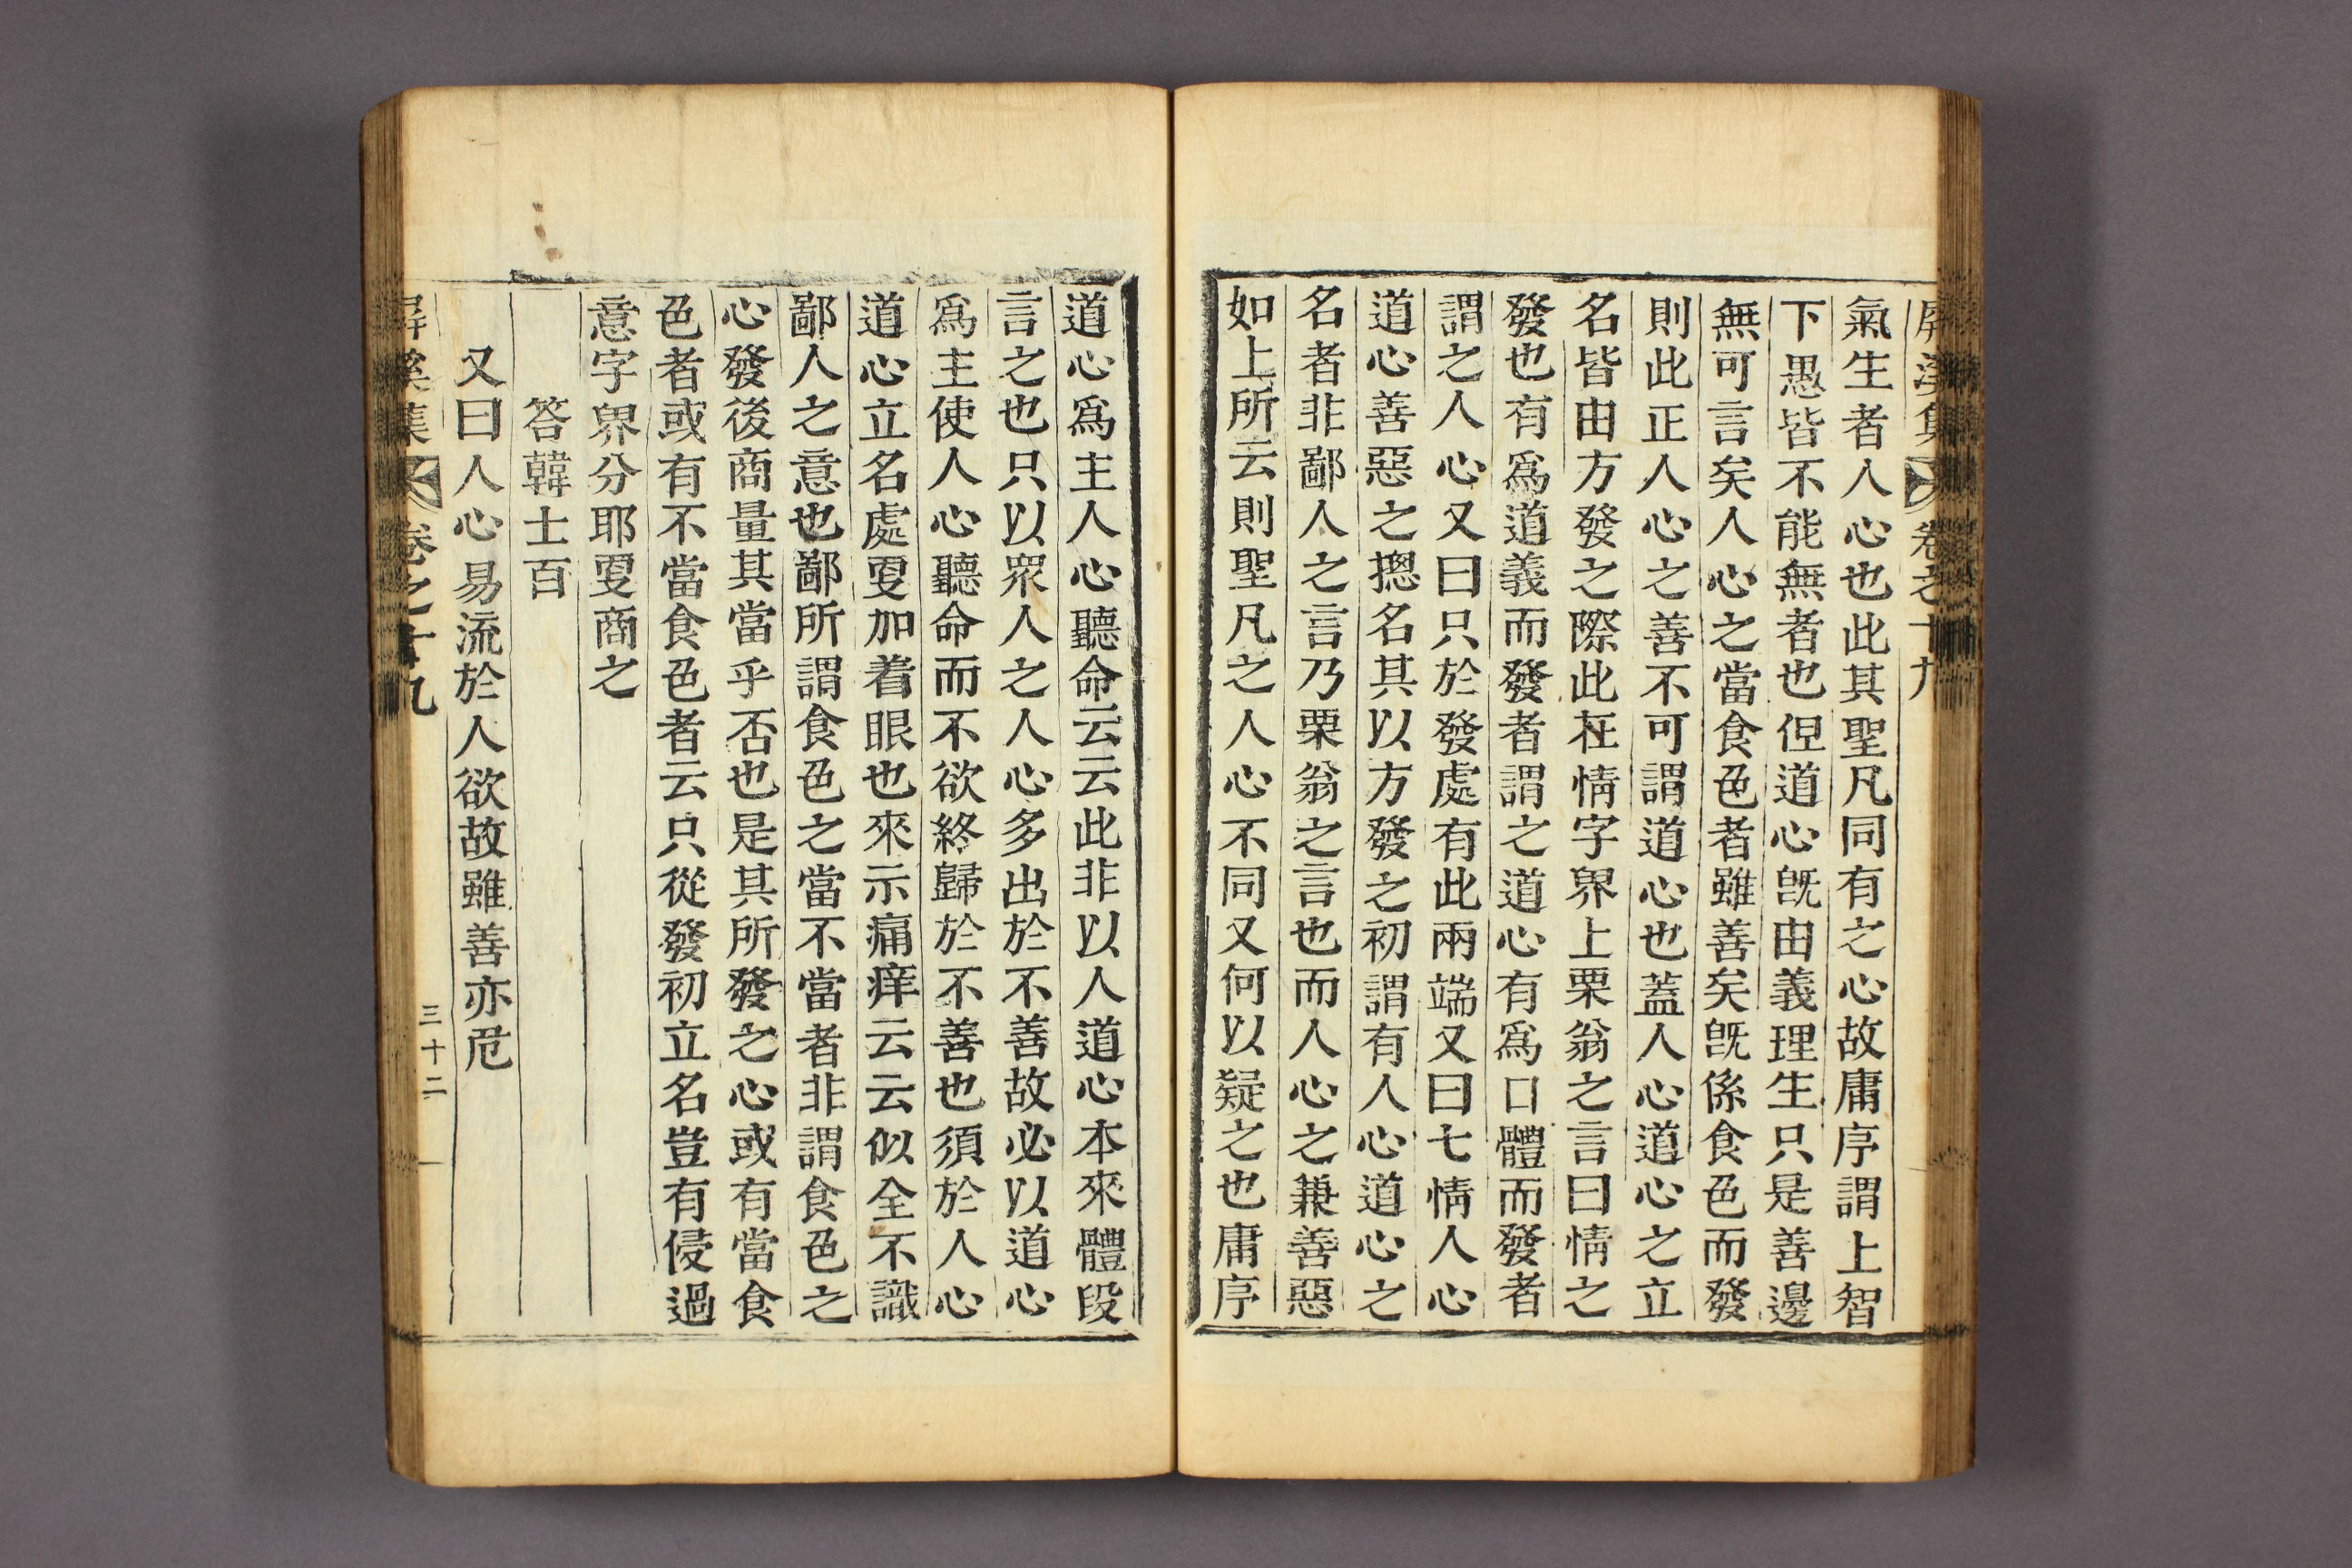 屛溪集 卷之十九
氣生者人心也此其聖凡同有之心故庸序謂上智
下愚皆不能無者也但道心旣由義理生只是善邊
無可言矣人心之當食色者雖善矣旣係食色而發
則此正人心之善不可謂道心也蓋人心道心之立
名皆由方發之際此在情字界上栗翁之言曰情之
發也有爲道義而發者謂之道心有爲口體而發者
謂之人心又曰只於發處有此兩端又曰七情人心
道心善惡之摠名其以方發之初謂有人心道心之
名者非鄙人之言乃栗翁之言也而人心之兼善惡
如上所云則聖凡之人心不同又何以疑之也庸序
道心爲主人心聽命云云此非以人道心本來體段
言之也只以衆人之人心多出於不善故必以道心
爲主使人心聽命而不欲終歸於不善也須於人心
道心立名處更加着眼也來示痛痒云云似全不識
鄙人之意也鄙所謂食色之當不當者非謂食色之
心發後商量其當乎否也是其所發之心或有當食
色者或有不當食色者云只從發初立名豈有侵過
意字界分耶更商之
答韓士百
又曰人心易流於人欲故雖善亦危
屛溪集 卷之十九 三十二